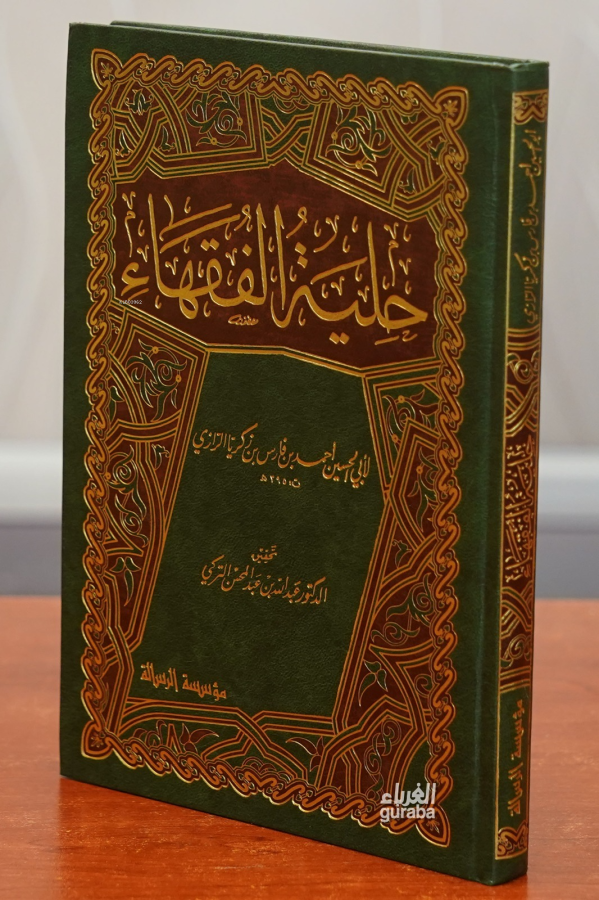 حِليَةُ الفُقَهَاءِ
لأبي الحسين أحمد بن فارس بن زكريا الرازي
ت ٣٩٥ هـ
تحقيق
الدكتور عبد الله بن عبد المحسن التركي
مؤسسة الرسالة
أبو الحسين أحمد بن فارس بن زكريا الرازي
حلية الفقهاء
مؤسسة الرسالة
الغرباء
guraba